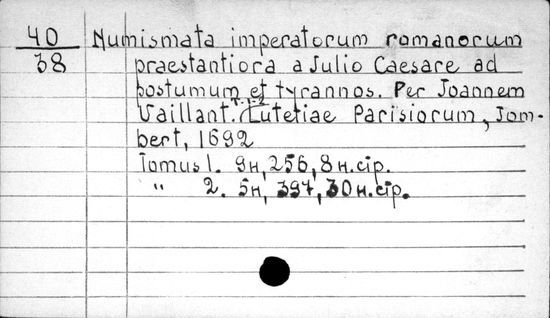 40 Numismata imperatorum romanorum
38 praestantiora a Julio Caesare ad
postumum et tyrannos. Per Joannem
Vaillant. T.1-2 Lutetiae Parisiorum, Jom-
bert, 1692
Tomus 1. 9н, 256, 8 н.стр.
" 2. 5н, 397, 30 н.стр.